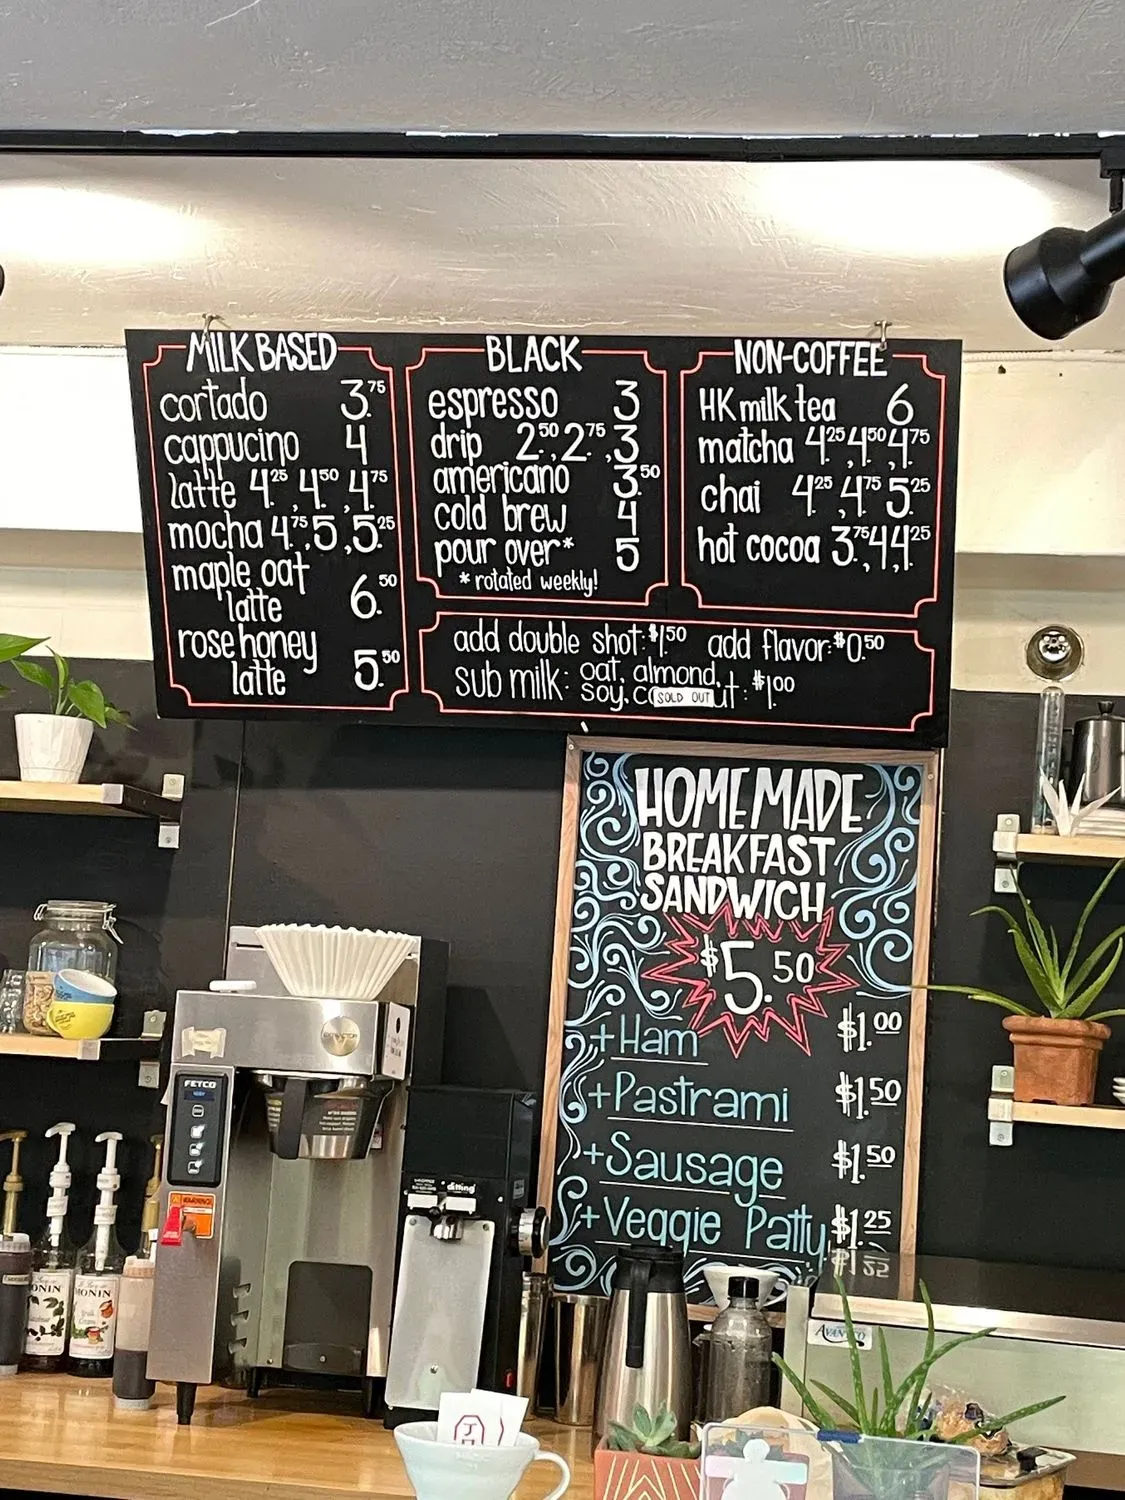 MILK BASED
cortado 3.75
cappucino 4
latte 4.25, 4.50, 4.75
mocha 4.75, 5, 5.25
maple oat
latte 6.50
rose honey
latte 5.50
BLACK
espresso 3
drip 2.50, 2.75, 3
americano 3.50
cold brew 4
pour over* 5
* rotated weekly!
NON-COFFEE
HK milk tea 6
matcha 4.25, 4.50, 4.75
chai 4.25, 4.75 5.25
hot cocoa 3.75, 4 4.25
add double shot: $1.50 add flavor: $0.50
sub milk: oat, almond,
soy, SOLD OUT : $1.00
HOMEMADE
BREAKFAST
SANDWICH
$5.50
+Ham $1.00
+Pastrami $1.50
+Sausage $1.50
+Veggie Patty $1.25
FETCO
ditting
MONIN
MONIN
AVANTCO